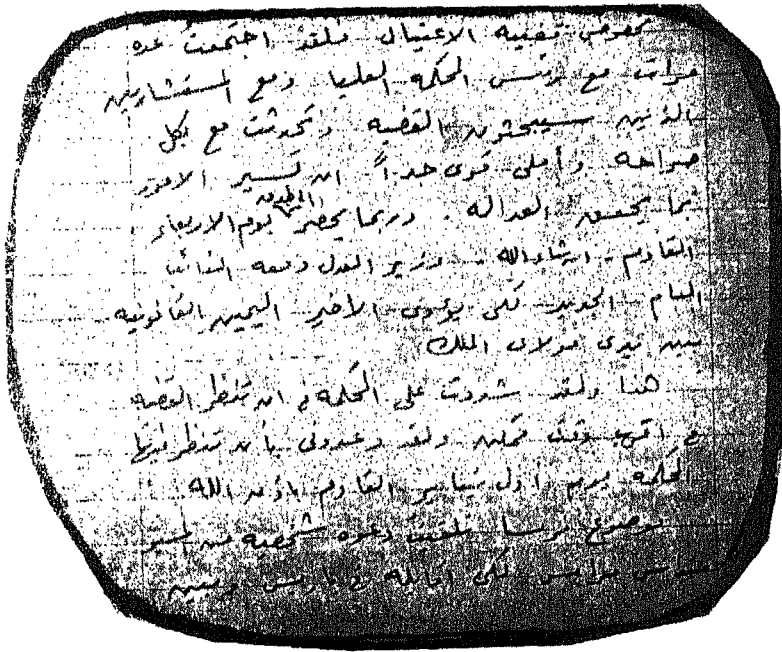 بخصوص قضيه الاغتيال فلقد اجتمعت عدة
مرات مع رئيس المحكمه العليا ومع المستشارين
الذين سيبحثون القضيه وتحدثت مع الكل
صراحه وأملى قوى جداً ان تسير الامور
بما يحقق العداله. وربما يحضر يوم الاربعاء
القادم - انشاء الله - وزير العدل ومعه النائب
العام الجديد لكى يؤدى الاخير اليمين القانونيه
بين يدى مولاى الملك
هذا ولقد شددت على المحكمه فى ان تنظر القضيه
فى اقرب وقت ممكن ولقد وعدونى بأن تنظر فيها
المحكمه يوم أول يناير القادم بإذن الله.
موضوع فرنسا تلقيت دعوه شخصيه من المستر
لكى اقابله فى باريس